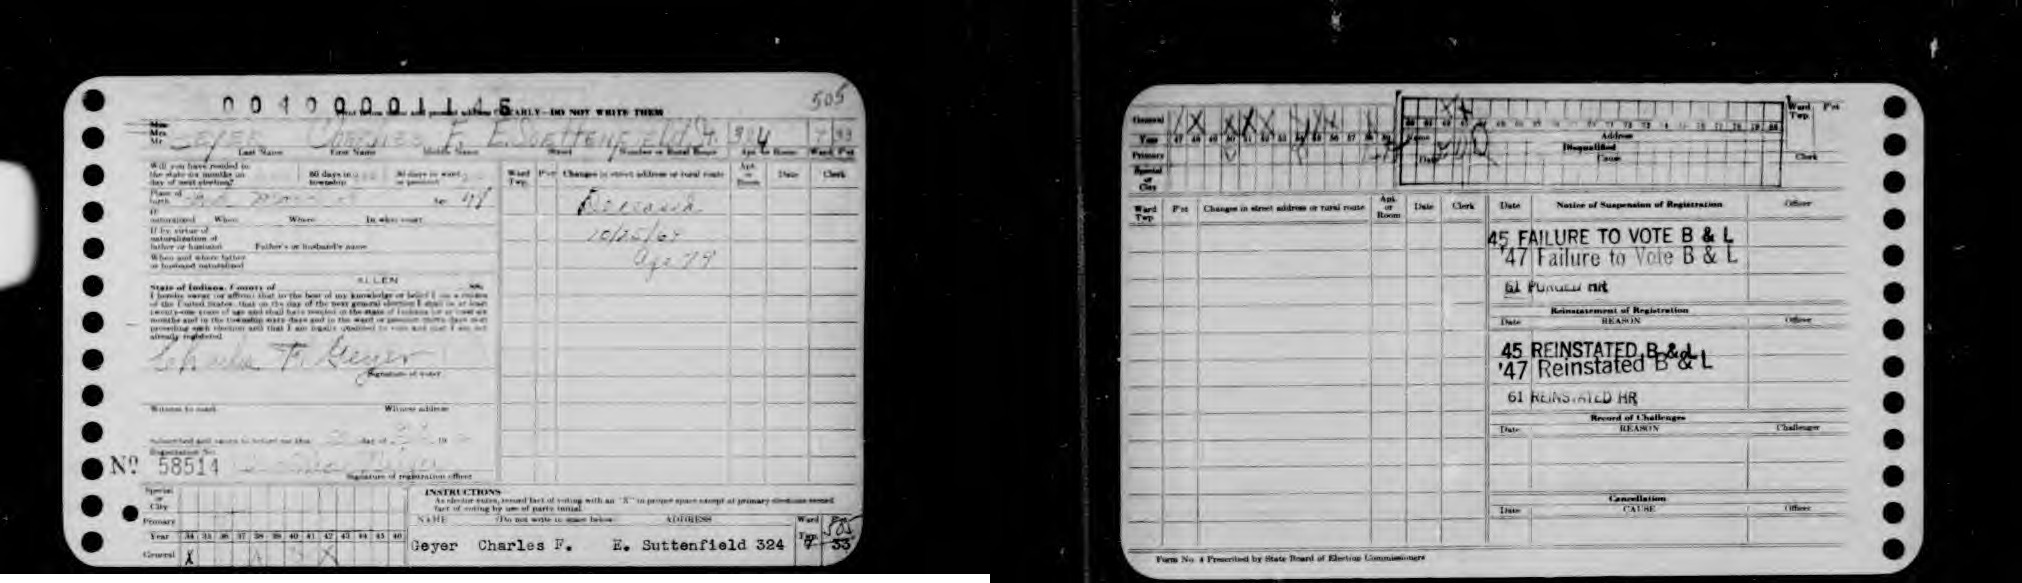 505
0040000 1145
CLEARLY—DO NOT WRITE THEM
Mrs.
Mr.
GEYER Charles F. E. Suttenfield St. 324 7 33
Last Name First Name Middle Name Street Number or Rural Route Apt. or Room Ward P'ct
Will you have resided in
the state six months on 60 days in 30 days in ward
day of next election? township or precinct
Place of
birth Age 48
If
naturalized When Where In what court
If by virtue of
naturalization of
father or husband Father's or husband's name
When and where father
or husband naturalized
ALLEN
State of Indiana, County of
I hereby swear (or affirm) that to the best of my knowledge or belief I am a citizen
of the United States, that on the day of the next general election I shall be at least
twenty-one years of age and shall have resided in the state of Indiana for at least six
months and in the township sixty days and in the ward or precinct thirty days next
preceding such election and that I am legally qualified to vote and that I am not
already registered.
Charles F. Geyer
Signature of voter
Witness to mark Witness address
Subscribed and sworn to before me this day of 19
Registration No.
Nº 58514
Signature of registration officer
Ward Twp. P'ct Changes in street address or rural route Apt. or Room Date Clerk
Deceased
10/25/65
Age 79
Special
or
City
Primary
Year 34 35 36 37 38 39 40 41 42 43 44 45 46
General X X X
INSTRUCTIONS
As elector votes, record fact of voting with an "X" in proper space except at primary elections record
fact of voting by use of party initial.
NAME (Do not write in space below) ADDRESS Ward Twp. P'ct
505
Geyer Charles F. E. Suttenfield 324 7 33
General
Year 47 48 49 50 51 52 53 54 55 56 57 58 59
Primary
Special
or
City
Name Address
Disqualified
Date Cause
Ward Twp. P'ct
Clerk
Ward Twp. P'ct Changes in street address or rural route Apt. or Room Date Clerk
Date Notice of Suspension of Registration Officer
45 FAILURE TO VOTE B & L
'47 Failure to Vote B & L
61 PURGED HR
Reinstatement of Registration
Date REASON Officer
45 REINSTATED B & L
'47 Reinstated B & L
61 REINSTATED HR
Record of Challenges
Date REASON Challenger
Cancellation
Date CAUSE Officer
Form No. 4 Prescribed by State Board of Election Commissioners